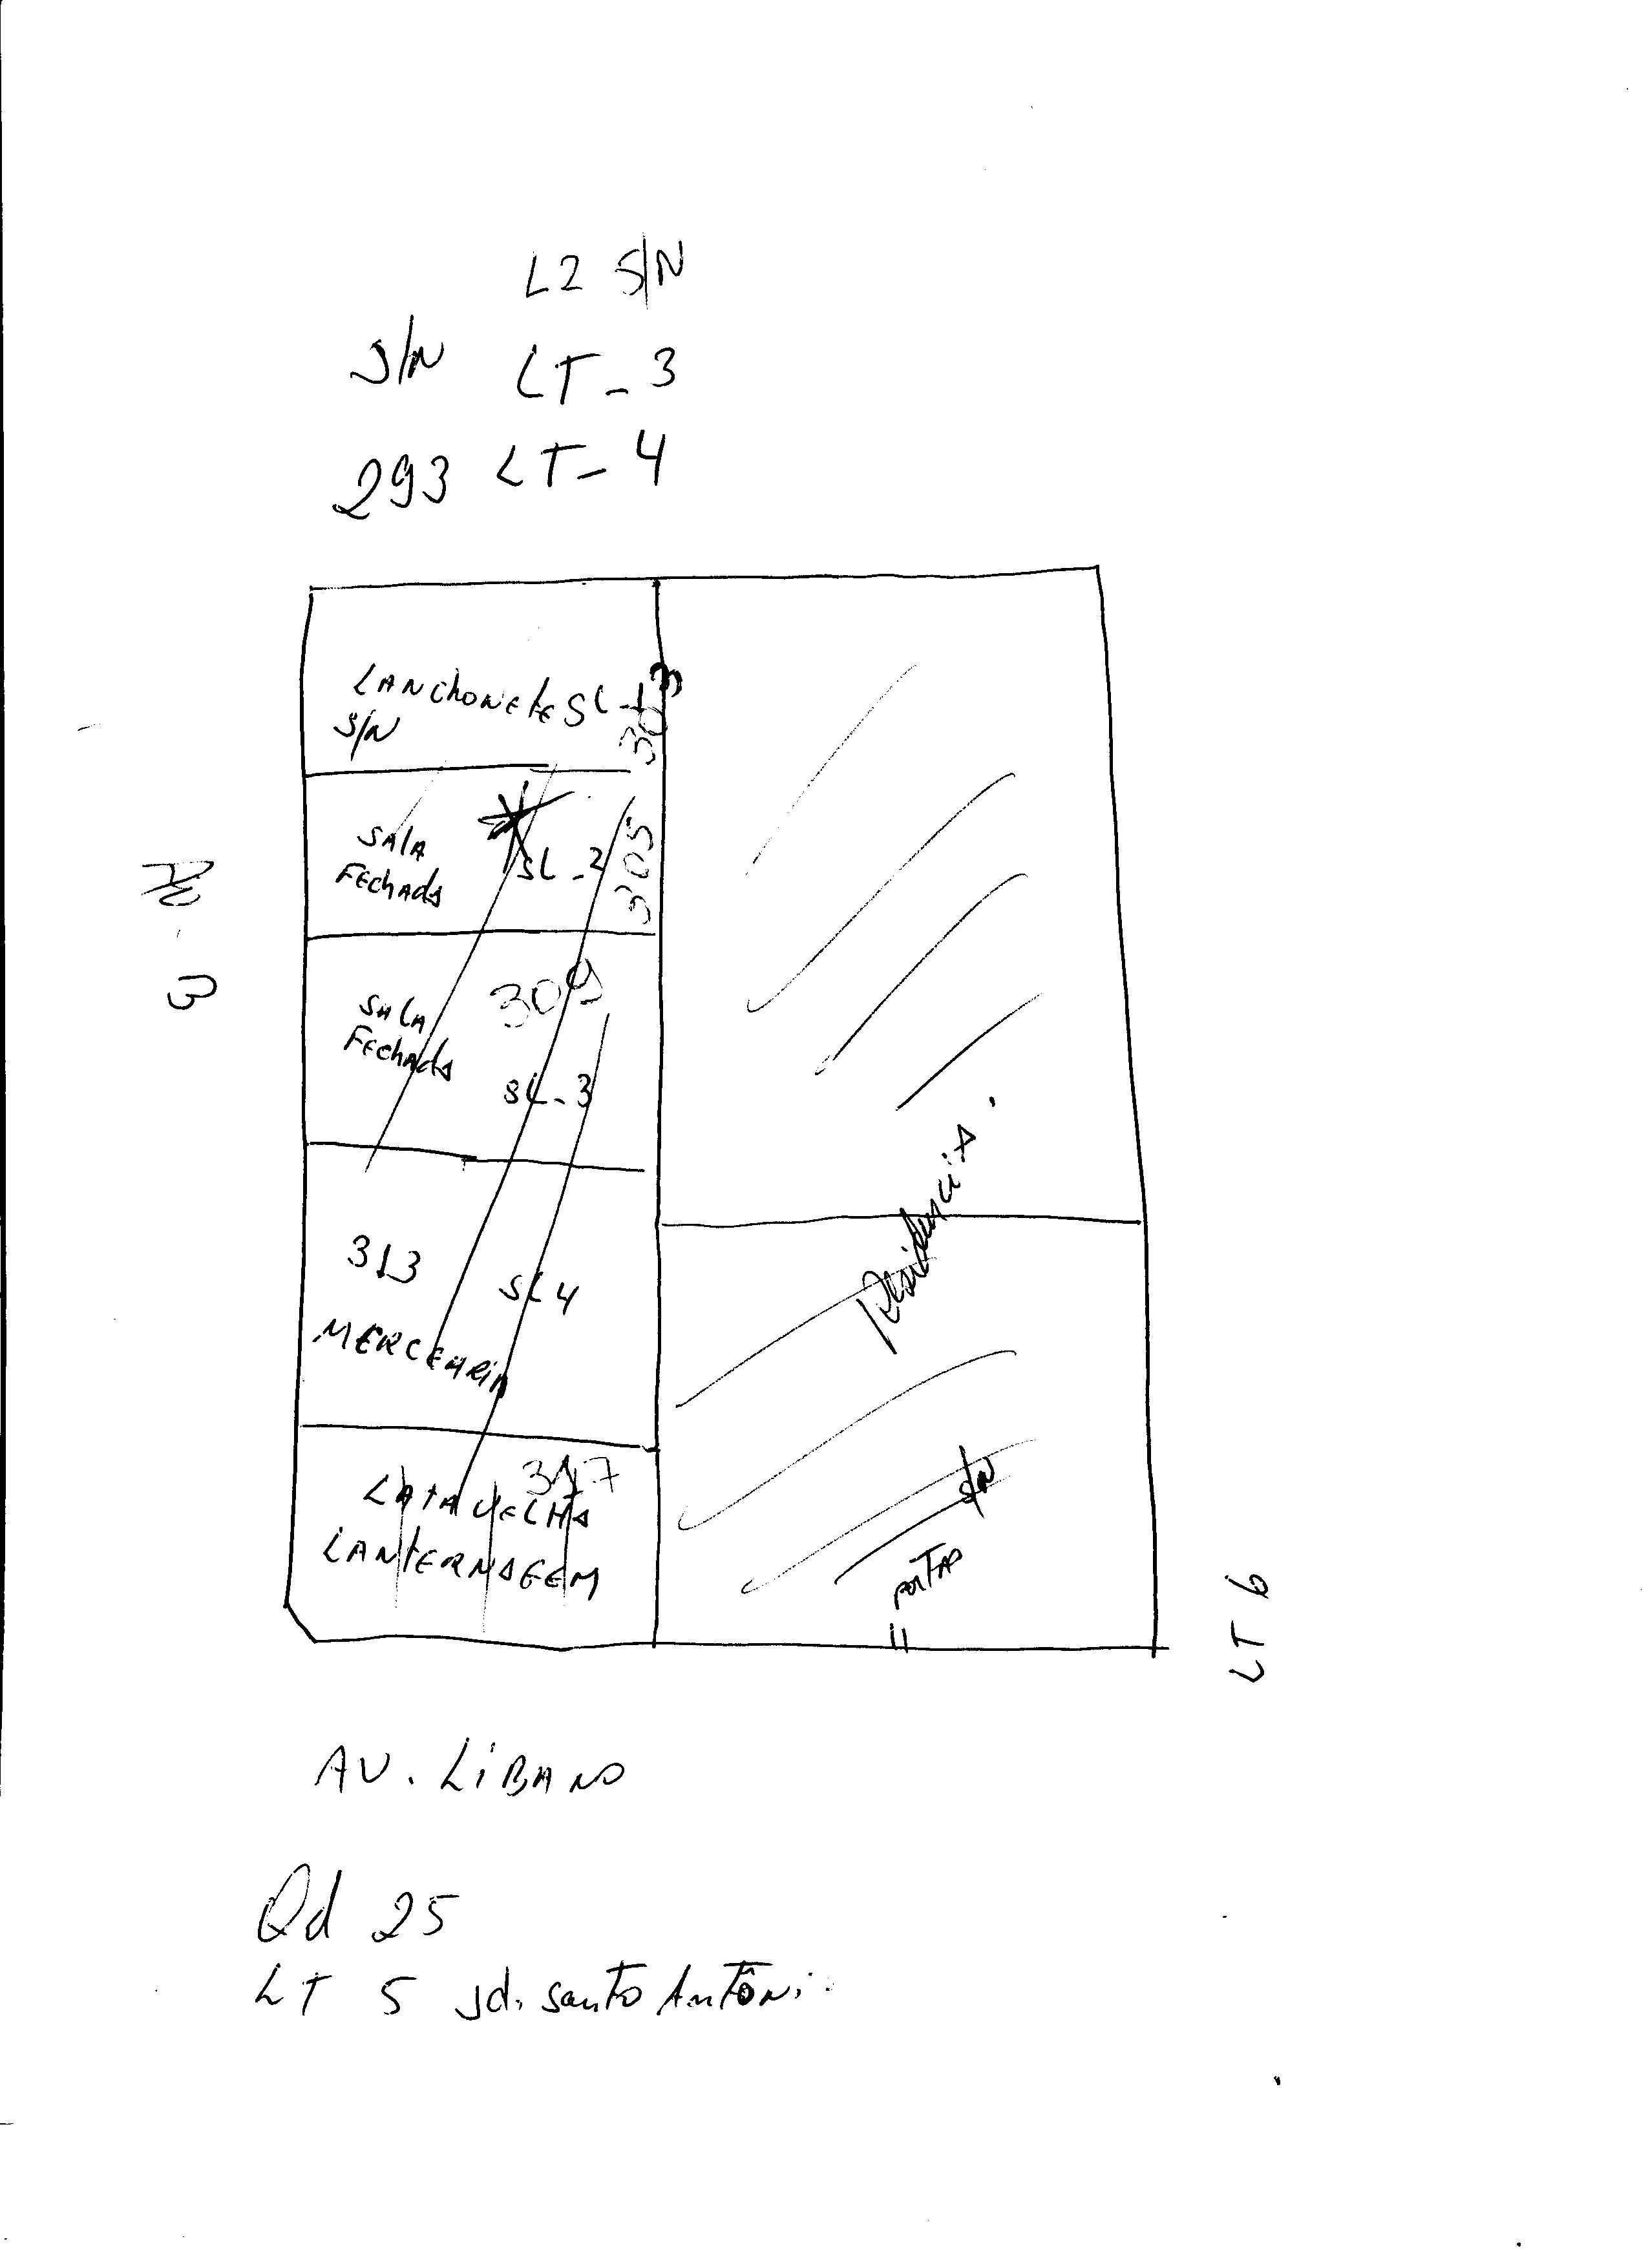 L2 S/N
S/N LT - 3
293 LT - 4
LANchONEtE SL - 1
S/N
303
SALA
FEchAdA
SL - 2
305
SALA
FEchAdA
309
SL - 3
313
SL 4
MERCEARIA
317
LATA VELHA
LANTERNAGEM
Residencia.
S/N
LT 6
AV. LiBANO
Qd 25
LT 5 Jd. santo Antôni